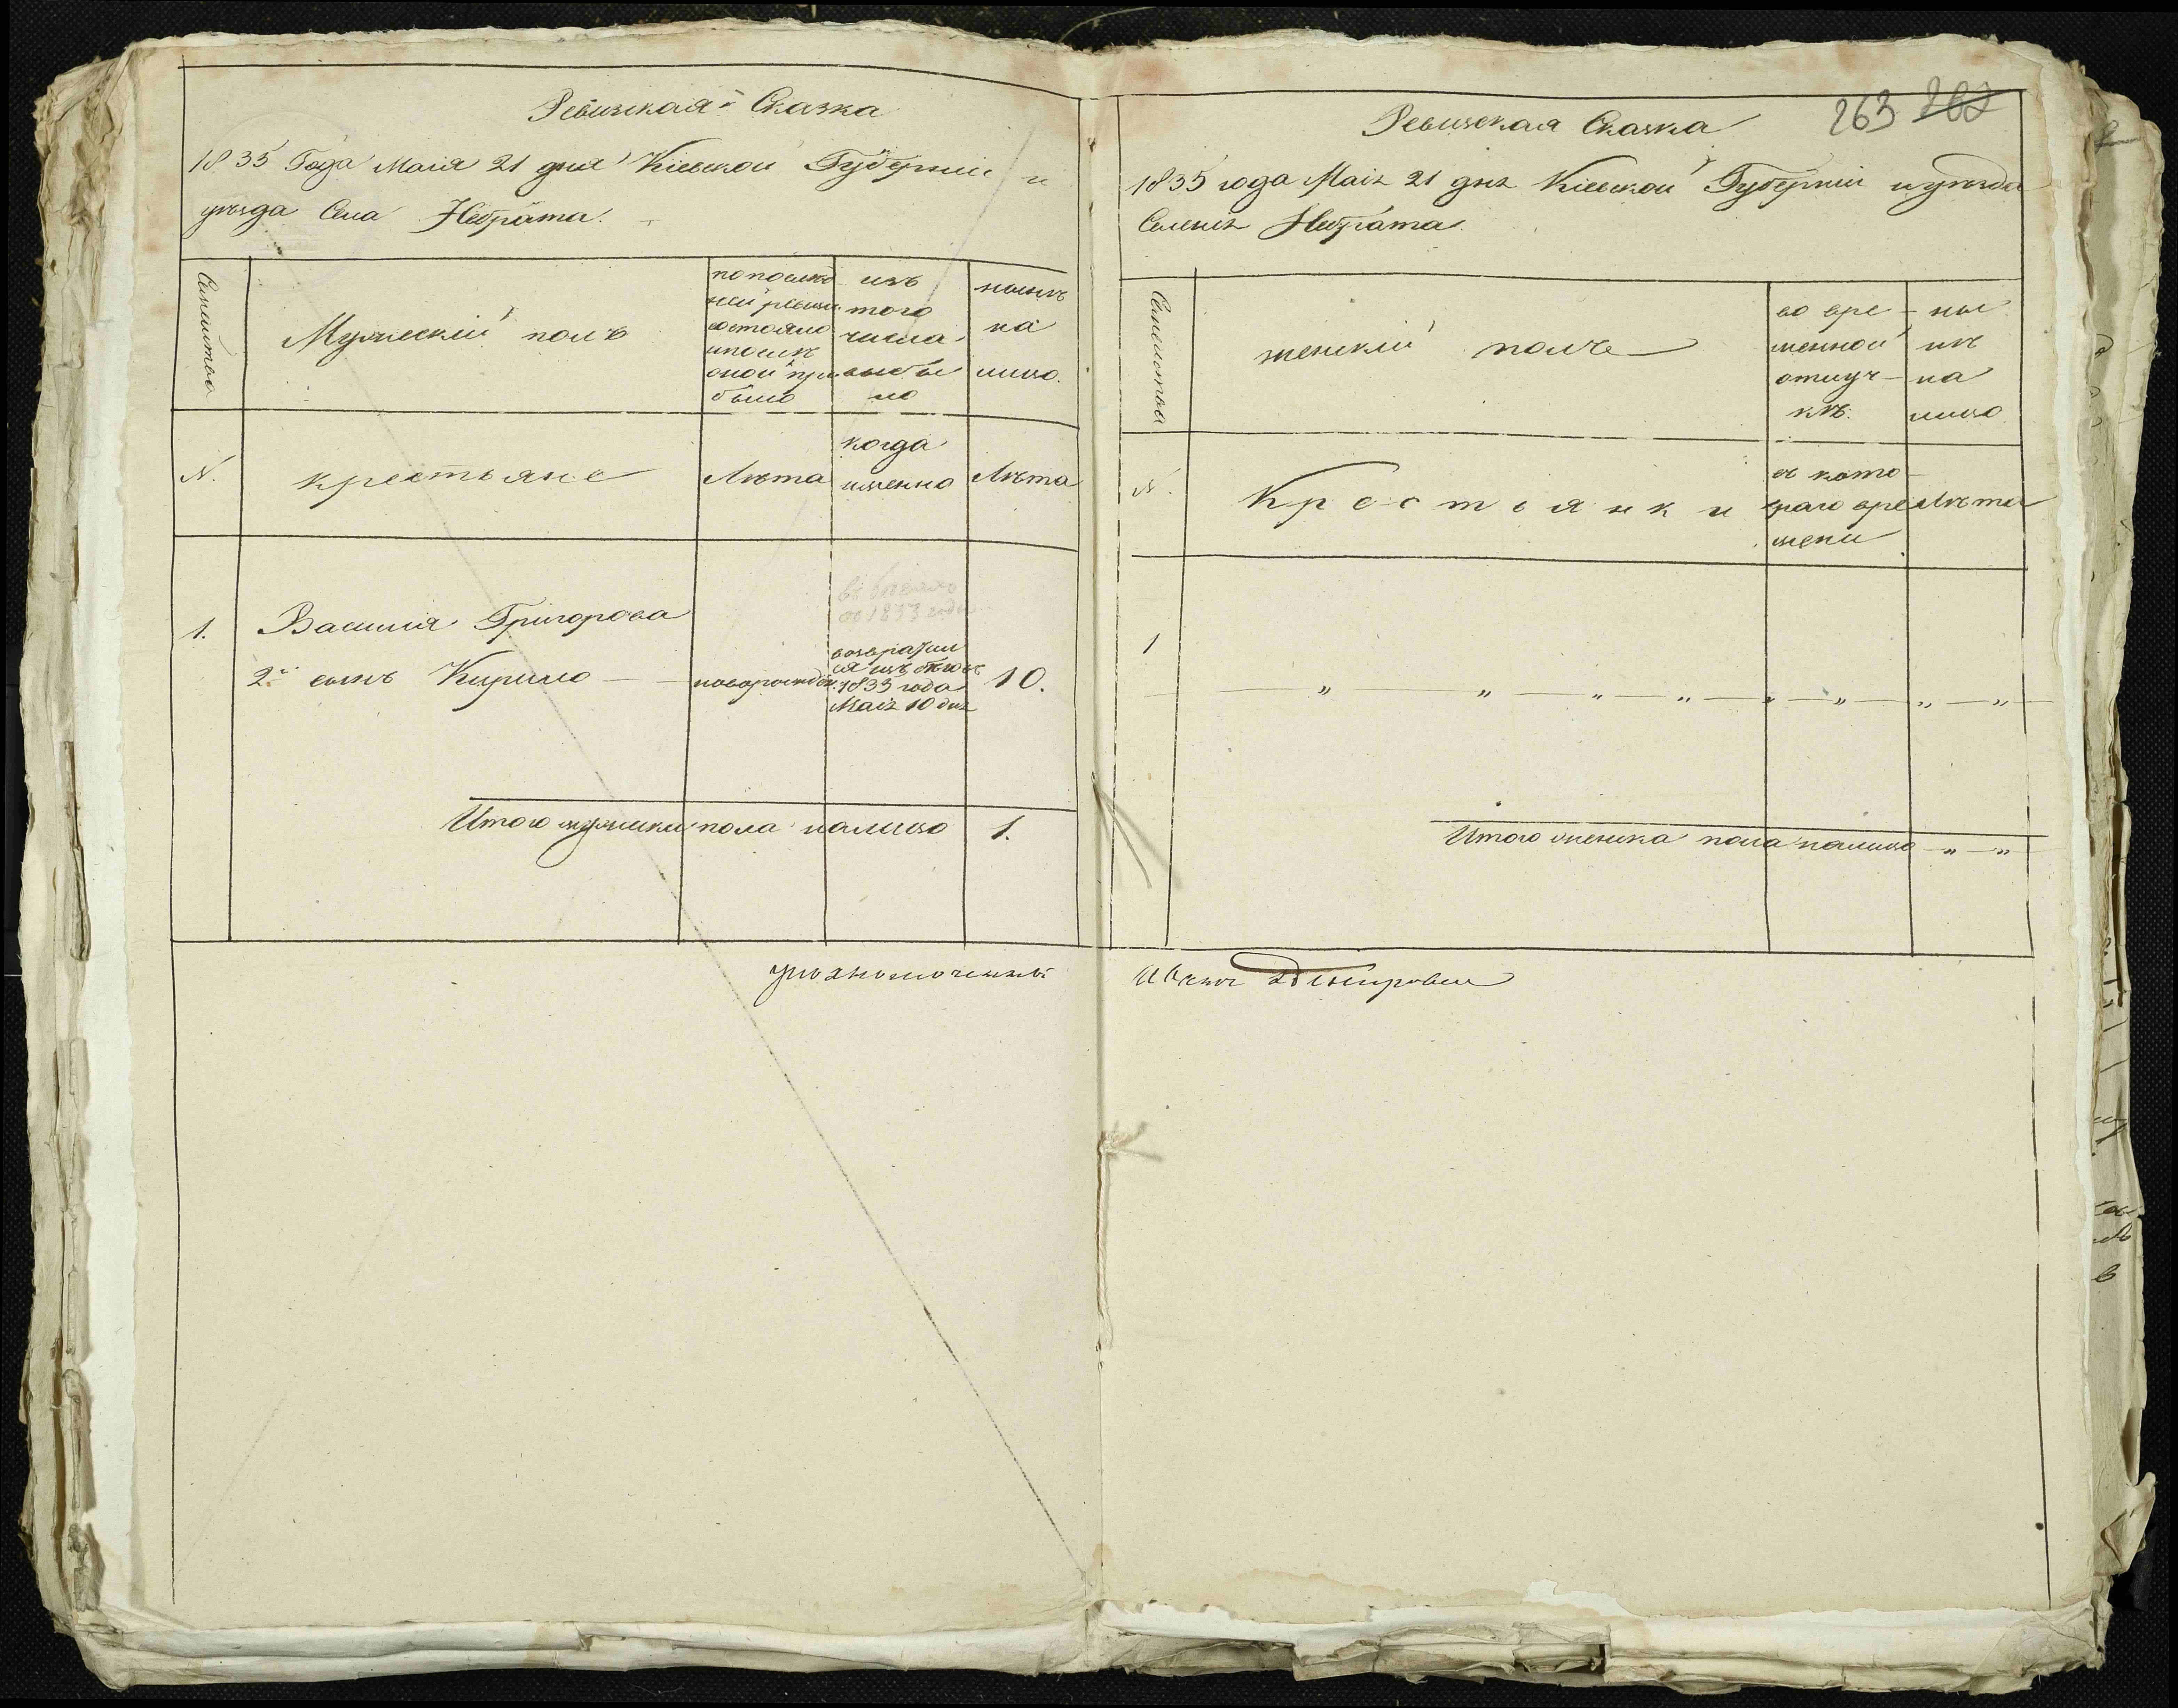 Ревизская Сказка
1835 Года Маия 21 дня Кіевской Губерніи и
уезда Села Небрата.
Семейства
Мужескій полъ
по последней ревизіи состояло и после оной прибыло
изъ того числа выбыло
ныне на лицо.
N.
крестьяне
Лета
когда именно
Лета
во 1833 года
1.
Василія Григорова
2й сынъ Кирило — новорожден.
возвратился изъ бегов 1833 года Маія 10 дня
10.
Итого мужеска пола налицо 1.
уполномоченный
263
Ревизская Сказка
1835 года Маія 21 дня Кіевской Губерніи и уезда
Селенія Небрата.
Семейства
женскій полъ
во временной отлучке
ныне на лицо
N.
Крестьянки
съ котораго времени
Лета
1
— „ — „ — „ — „ — „ — „ — „ — „ —
Итого женска пола налицо — „ — „